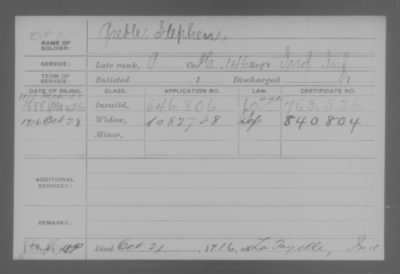 NAME OF SOLDIER: Greble Stephen,
SERVICE: Late rank, P Co. 146 Reg't Ind Inf
TERM OF SERVICE: Enlisted , 1 Discharged , 1
DATE OF FILING. CLASS. APPLICATION NO. LAW. CERTIFICATE NO.
1888 Mar Invalid, 646806 763,526
1916 Oct 28 Widow, 1082728 840804
Minor,
ADDITIONAL SERVICES:
REMARKS:
Died Oct 21, 1916, at La Fayette, Ind